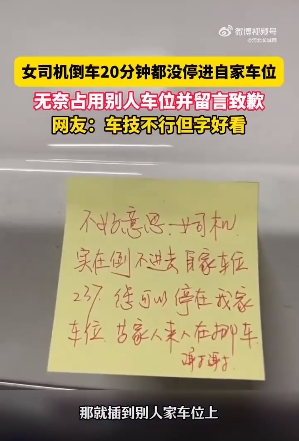 微博视频号
女司机倒车20分钟都没停进自家车位
无奈占用别人车位并留言致歉
网友：车技不行但字好看
不好意思.女司机
实在倒不进去自家车位
237. 您可以停在我家
车位
家人来人在挪车
谢了谢了
那就插到别人家车位上